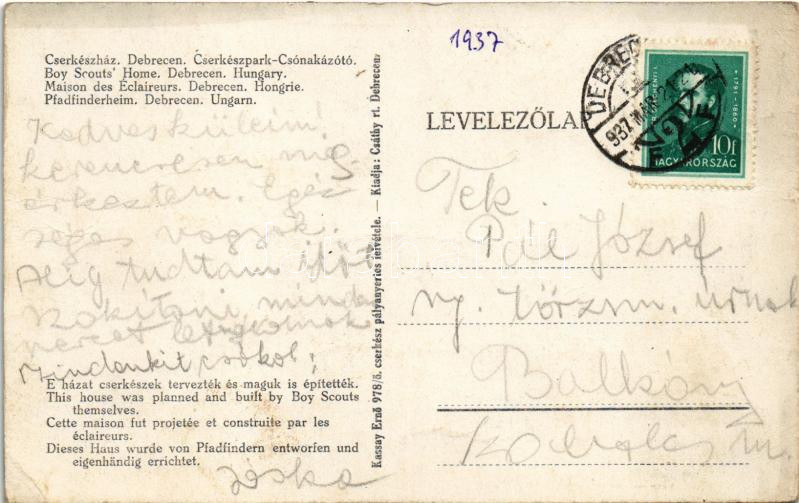 1937
Cserkészház. Debrecen. Cserkészpark-Csónakázótó.
Boy Scouts' Home. Debrecen. Hungary.
Maison des Éclaireurs. Debrecen. Hongrie.
Pfadfinderheim. Debrecen. Ungarn.
Kedves szüleim!
szerencsésen meg
érkeztem. Egés
séges vagyok.
Alig tudtam
minden
Mindenkit csókol:
Jóska
E házat cserkészek tervezték és maguk is építették.
This house was planned and built by Boy Scouts
themselves.
Cette maison fut projetée et construite par les
éclaireurs.
Dieses Haus wurde von Pfadfindern entworfen und
eigenhändig errichtet.
Kassay Ernő 978/ö. cserkész pályanyertes tervétele. — Kiadja: Csáthy rt. Debrecen.
LEVELEZŐLAP
DEBREC
937
1791-1860
10f
MAGYARORSZÁG
Tek.
Pál József
ny. törzsm. úrnak
Balkány
Szabolcs m.